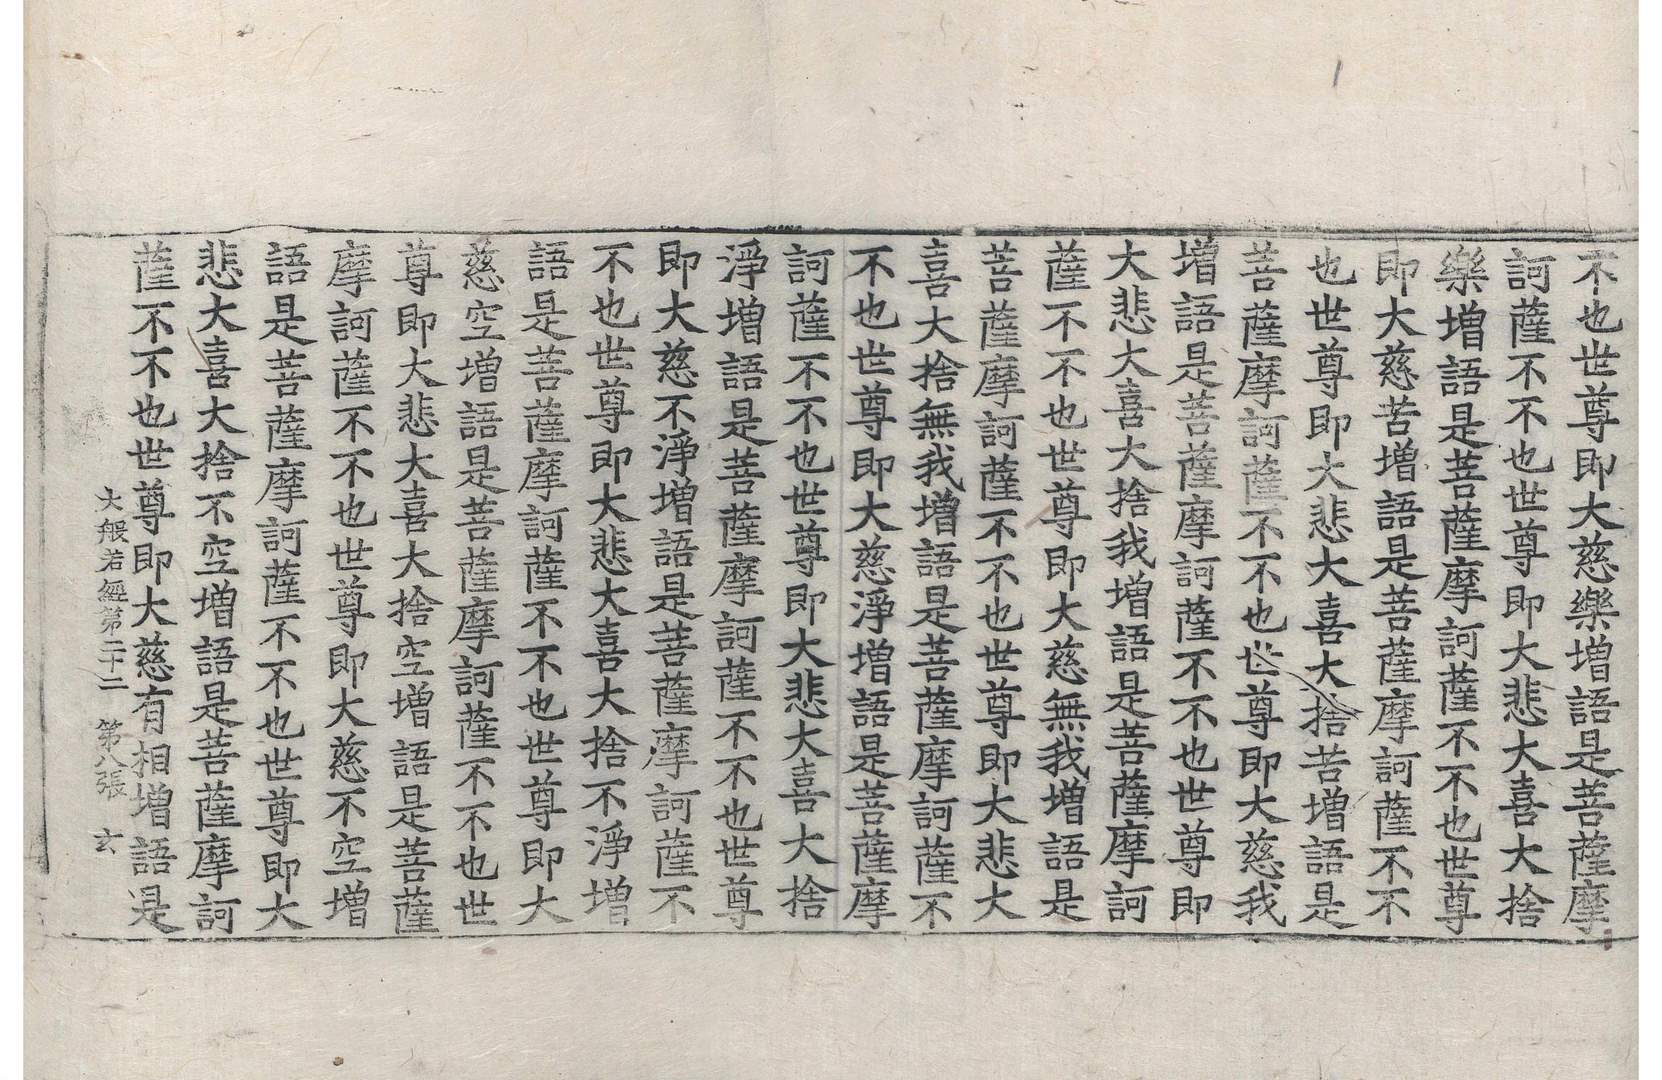 不也世尊即大慈樂増語是菩薩摩
訶薩不不也世尊即大悲大喜大捨
樂増語是菩薩摩訶薩不不也世尊
即大慈苦増語是菩薩摩訶薩不不
也世尊即大悲大喜大捨苦増語是
菩薩摩訶薩不不也世尊即大慈我
増語是菩薩摩訶薩不不也世尊即
大悲大喜大捨我増語是菩薩摩訶
薩不不也世尊即大慈無我増語是
菩薩摩訶薩不不也世尊即大悲大
喜大捨無我増語是菩薩摩訶薩不
不也世尊即大慈淨増語是菩薩摩
訶薩不不也世尊即大悲大喜大捨
淨増語是菩薩摩訶薩不不也世尊
即大慈不淨増語是菩薩摩訶薩不
不也世尊即大悲大喜大捨不淨増
語是菩薩摩訶薩不不也世尊即大
慈空増語是菩薩摩訶薩不不也世
尊即大悲大喜大捨空増語是菩薩
摩訶薩不不也世尊即大慈不空増
語是菩薩摩訶薩不不也世尊即大
悲大喜大捨不空増語是菩薩摩訶
薩不不也世尊即大慈有相増語是
大般若經第二十二 第八張 玄